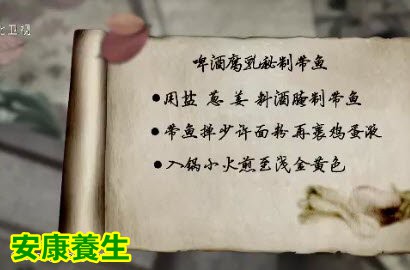 卫视
啤酒腐乳秘制带鱼
●用盐 葱 姜 料酒腌制带鱼
●带鱼掸少许面粉再裹鸡蛋液
●入锅小火煎至浅金黄色
安康養生